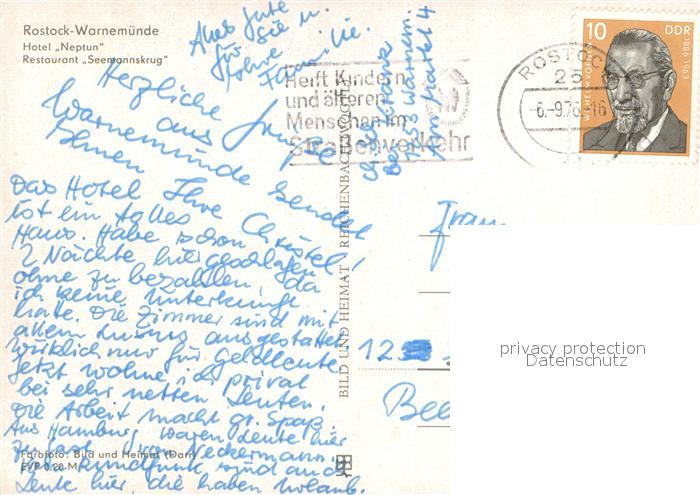 Rostock-Warnemünde
Hotel „Neptun“
Restaurant „Seemannskrug“
Alles Gute
für Sie u.
Ihre
Familie.
Herzliche Grüße
aus
Warnemünde sendet
Ihnen
Ihre Christel
Das Hotel
ist ein tolles
Haus. Habe schon
2 Nächte hier geschlafen,
ohne zu bezahlen, da
ich keine Unterkunft
hatte. Die Zimmer sind mit
allem Luxus ausgestattet,
wirklich nur für Geldleute.
Jetzt wohne ich privat
bei sehr netten Leuten.
Die Arbeit macht gr. Spaß.
Aus Hamburg waren Leute hier
zu Gast von Neckermann.
Rundfunk sind auch
Leute hier, die haben Urlaub.
Farbfoto: Bild und Heimat (Darr)
EVP 0,20 M
BILD UND HEIMAT REICHENBACH (VOGTL)
Helft Kindern
und älteren
Menschen im
Straßenverkehr
ROSTOCK
25
-6.-9.76-16
10
DDR
1881-1963
Frau
12
privacy protection
Datenschutz